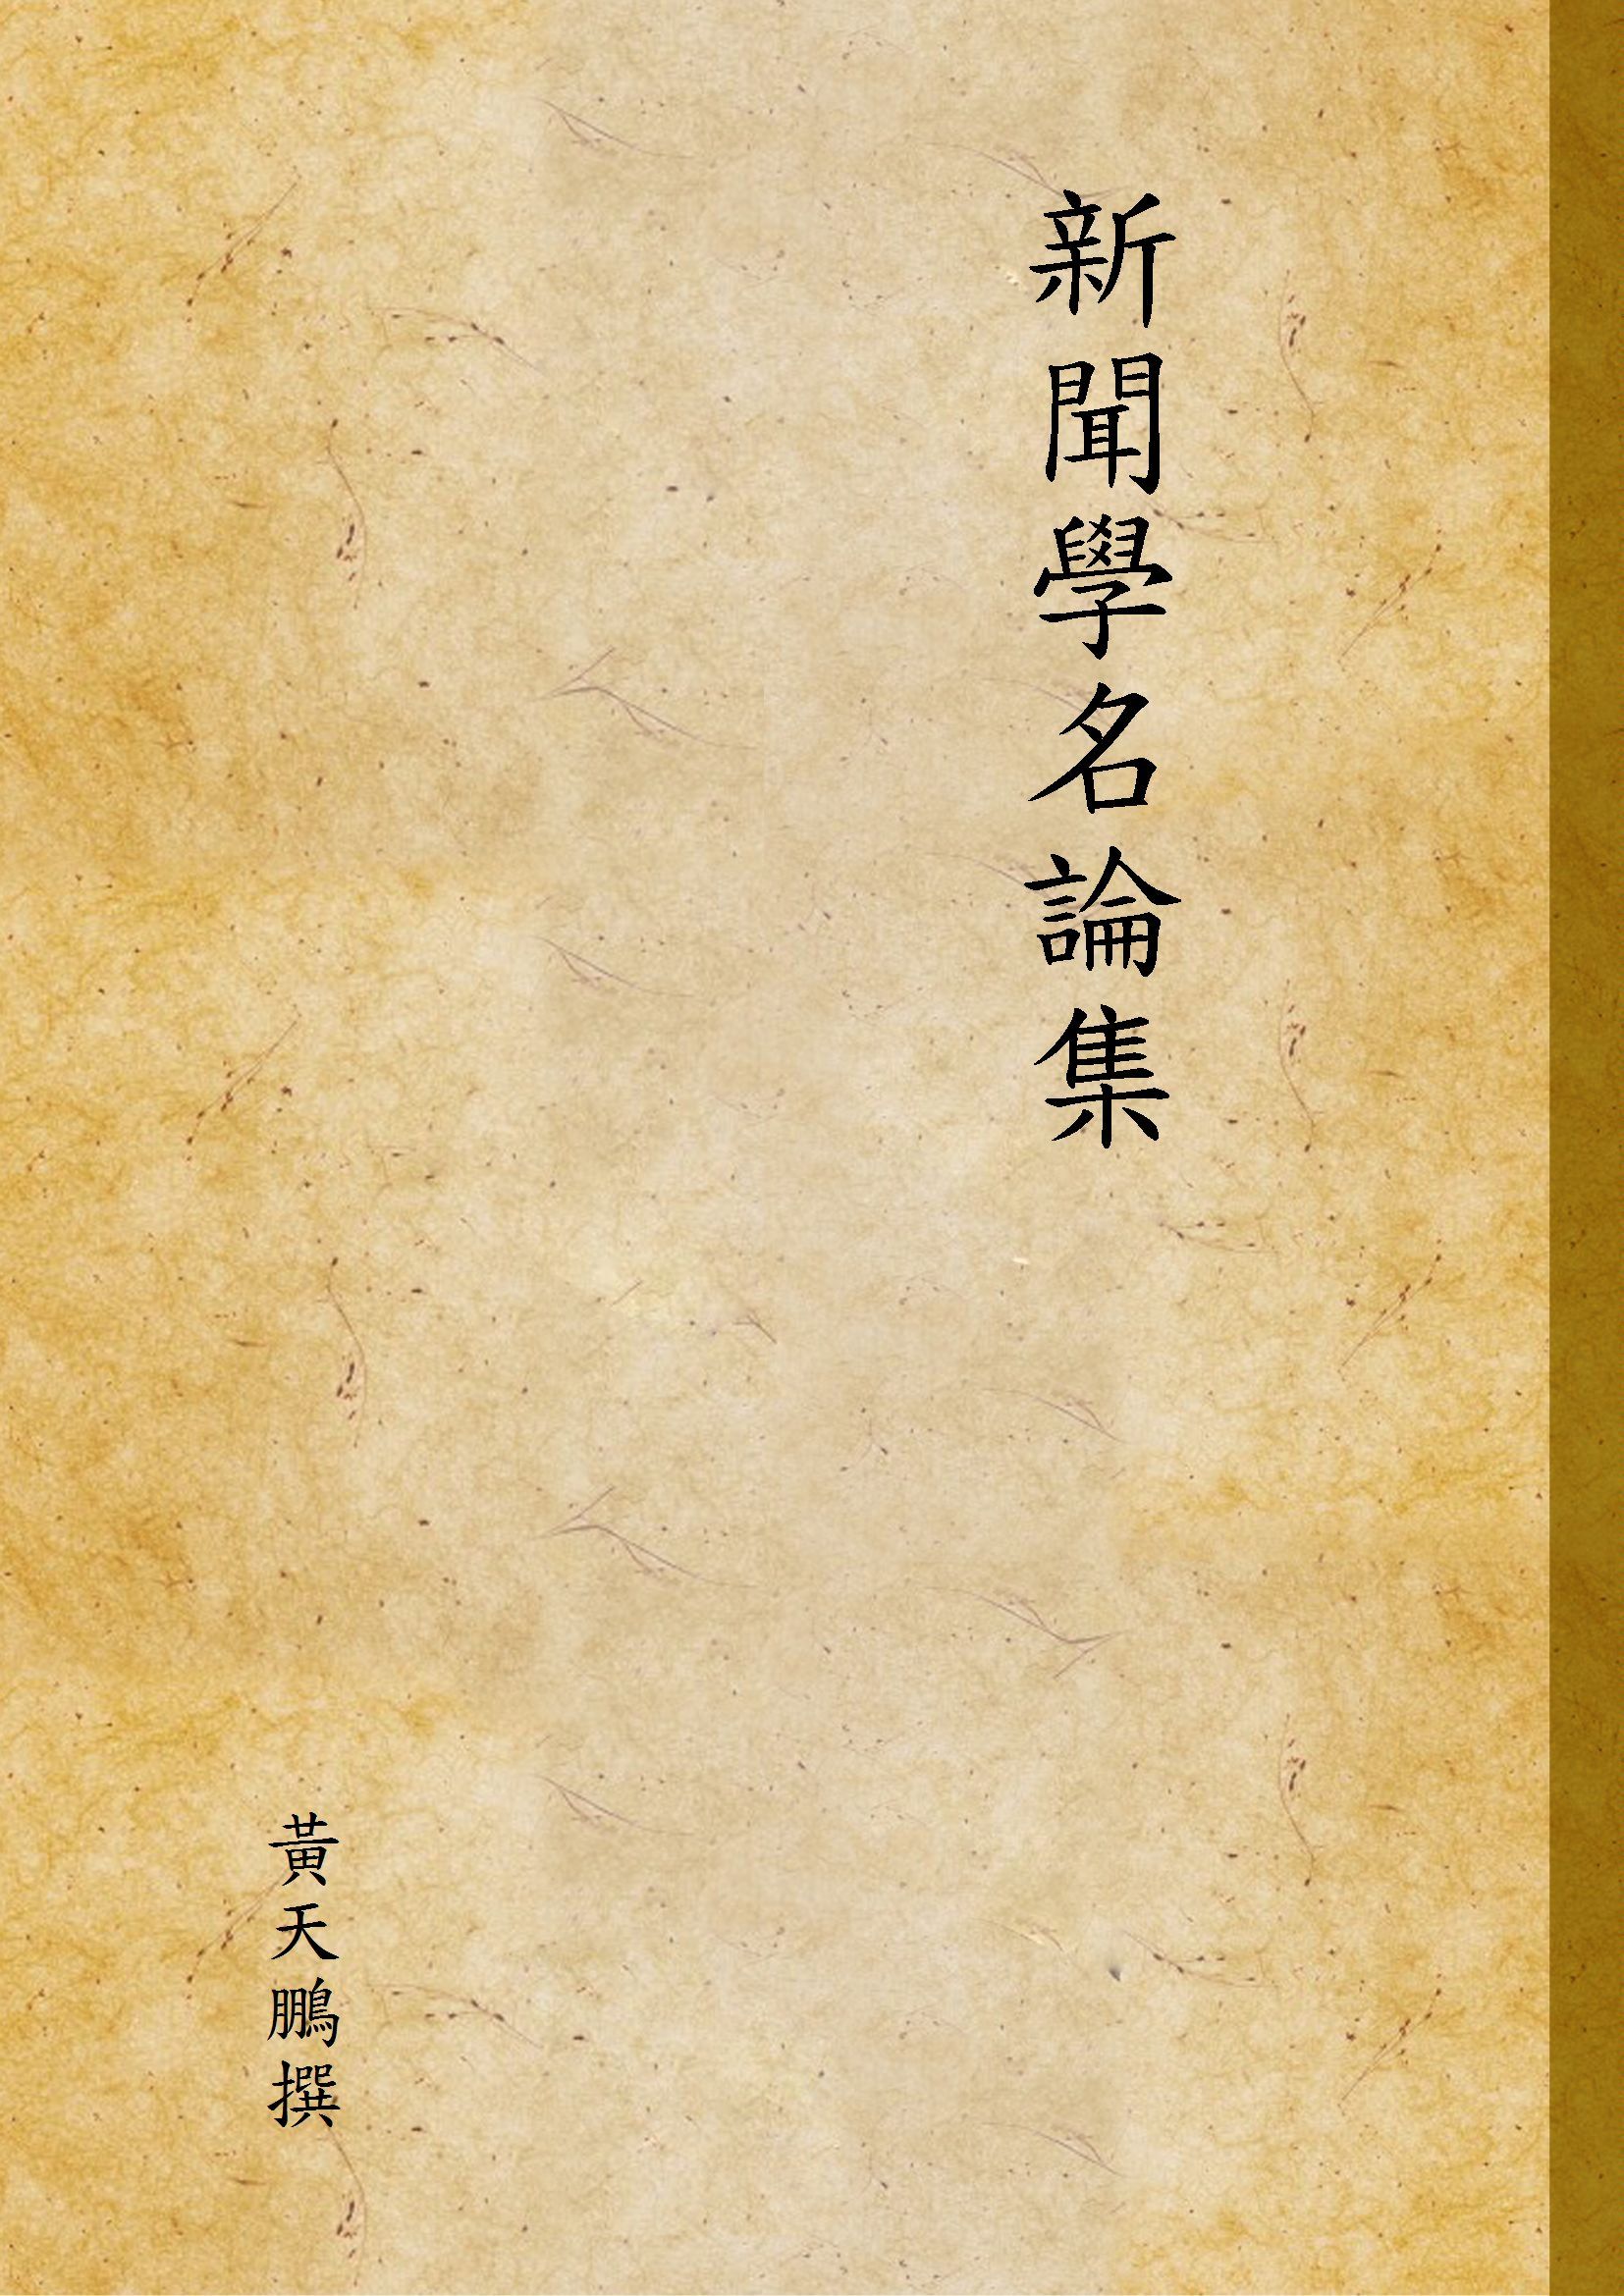 新聞學名論集
黃天鵬撰